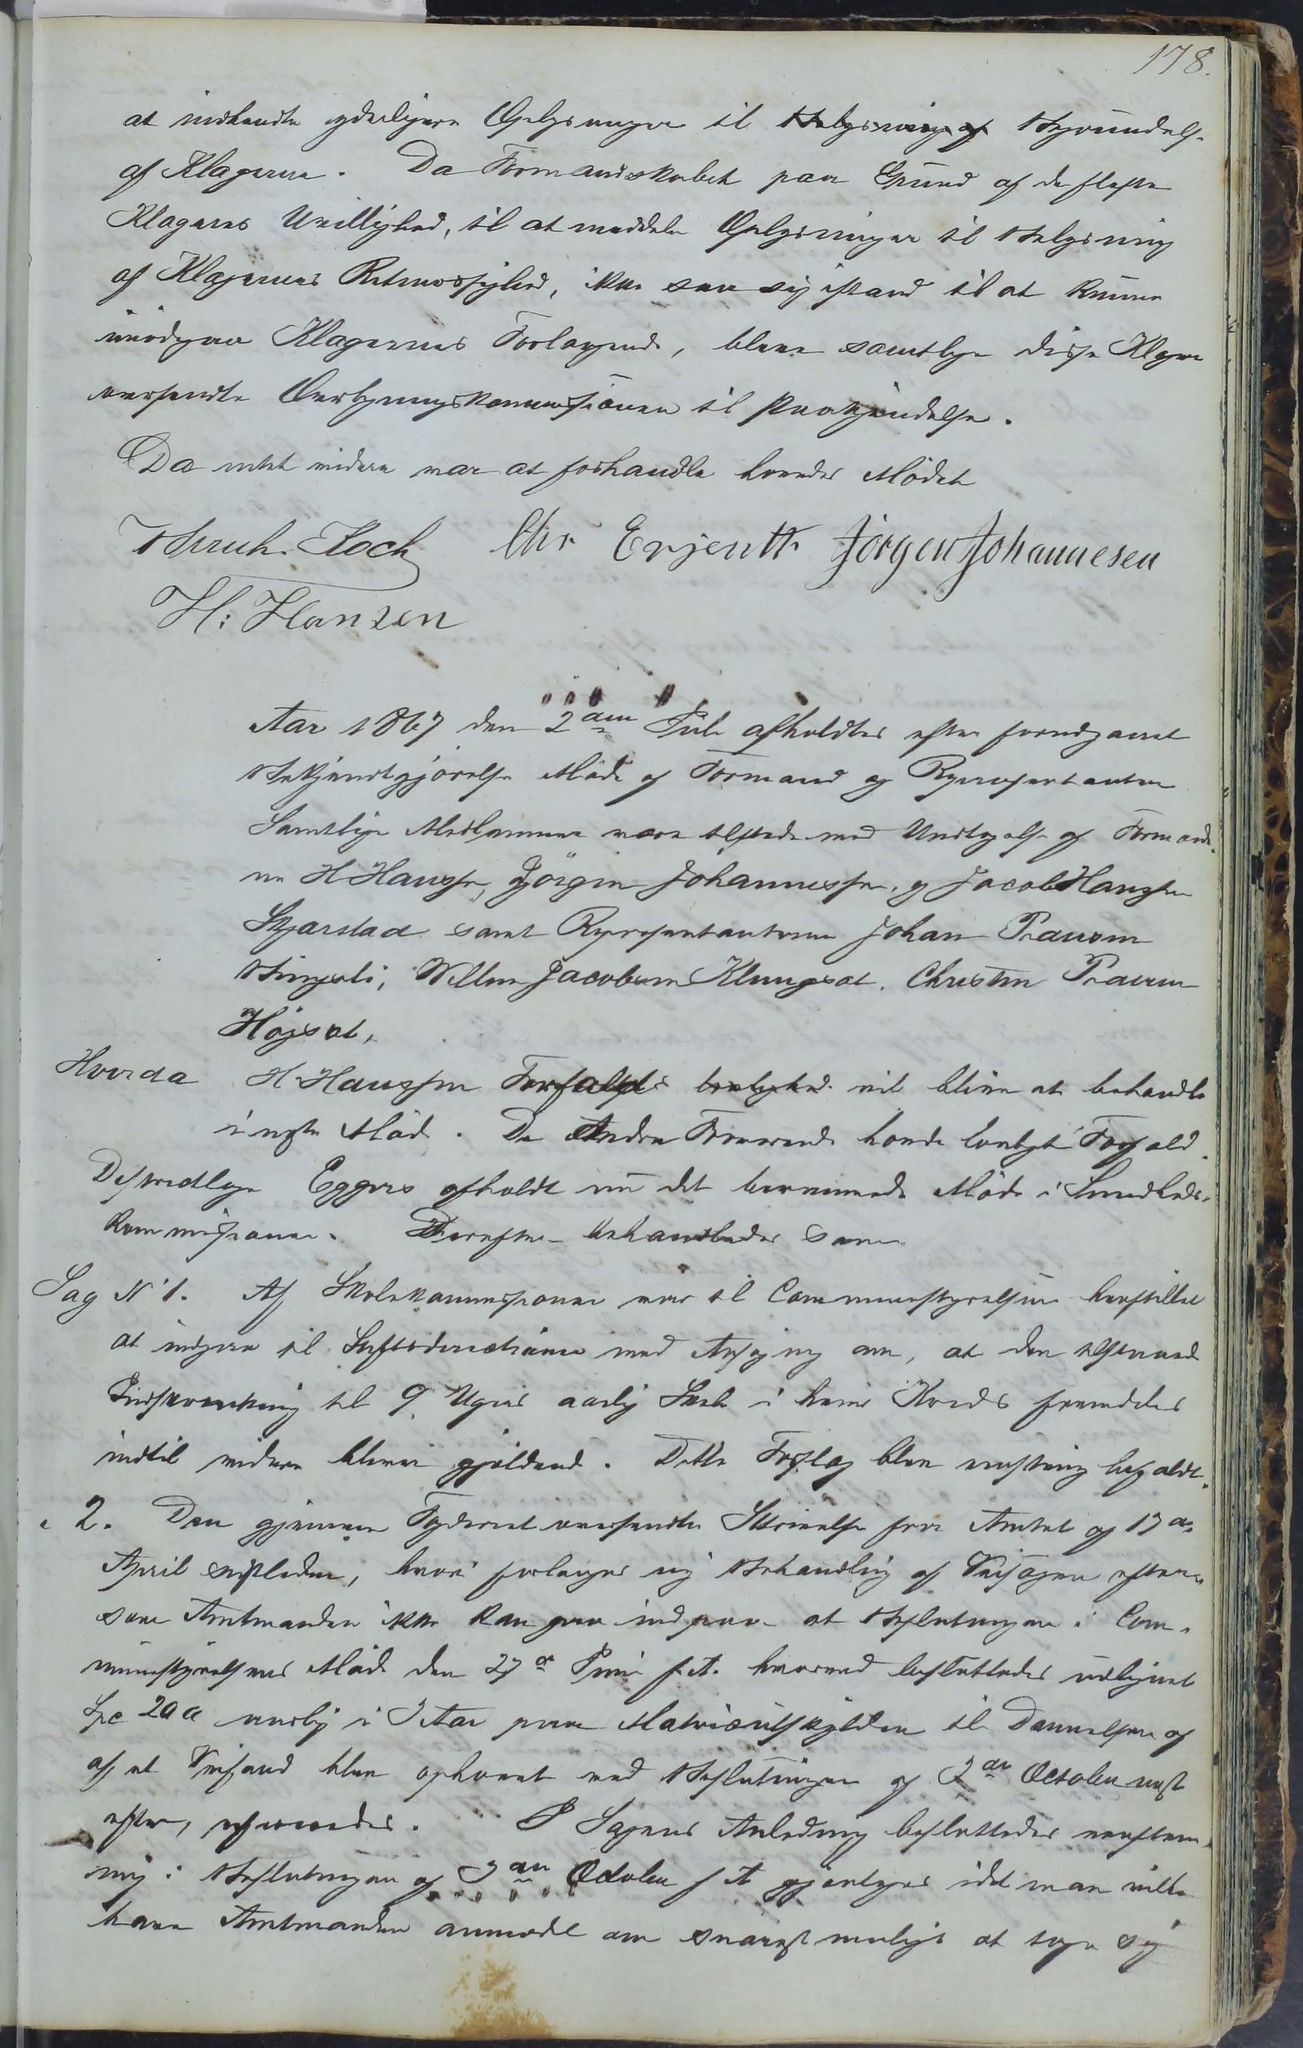 178.
at indhente yderligere Oplysninger til Belysning af Begrundelse
af Klagerne. Da Formandskabet paa Grund af de fleste
Klageres Uvillighed, til at meddele Oplysninger til Belysning
af Klagernes Retmæssighed, ikke saa sig istand til at kunne
imødegaa Klagernes Forlangende, bleve samtlige disse Klager
oversendte Overligningskommissionen til Paakjendelse.
Da intet videre var at forhandle hævedes Mödet
Koch Chr Erjenth Jörgen Johannesen
H: Hansen
Aar 1867 den 2den Juli afholdtes efter foredgaaet
Bekjendtgjörelse Möde af Formænd og Repræsentanter
Samtlige Medlemmer vare tilstede med Undtagelse af Formænde-
ne H Hanssen, Jörgen Johannessen, og Jacob Hansen
Skjarstad samt Repræsentanterne Johan Paulsen
Willum Jacobsen Klungset, Christen Paulsen
Högset,
Hvorda H. Hanssen Forfald vil blive at behandle
i næste Möde. De Andre Fraværende havde lovligt Forfald.
Desforuden Eggers afholdt nu det berammede Möde i Sundheds-
kommissionen. Derefter behandledes som
Sag No 1. Af Skolekommissionen var til Communestyrelsen henstillet
at indgaa til Stiftsdirectionen med Ansögning om, at den tilstaaede
Indskrænkning til 9 Ugers aarlig Skole i hver Kreds fremdeles
indtil videre bliver gjeldende. Dette Forslag blev enstemmig bifaldt.
" 2. Den gjennem Fogderiet oversendte Skrivelse fra Amtet af 17de
April sidstleden, hvori forlanges ny Behandling af Veisagen efter-
som Amtmanden ikke kan gaa ind paa at Beslutningen i Com-
munestyrelsens Möde den 27de Juni f. A. hvorved besluttedes udlignet
Spd 200 aarlig i 3 Aar paa Matriculskylden til Dannelsen af
af et Veifond blev ophævet ved Beslutningen af 3die October næst
efter, . I Sagens Anledning besluttedes enstem-
mig: Beslutningen af 3die October f A gjentages idet man vilde
have Amtmanden anmodet om snarest muligt at tage sig